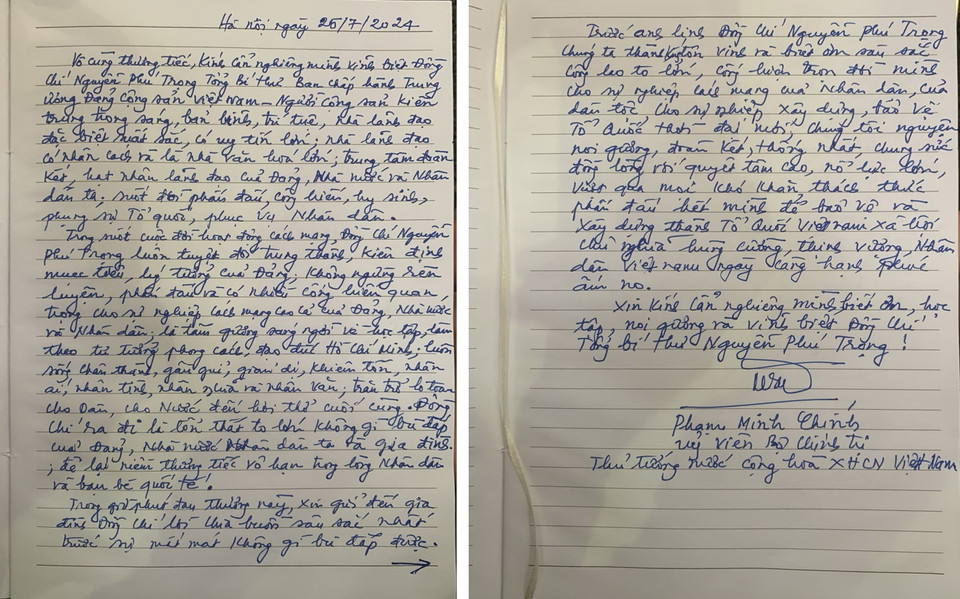 Hà nội, ngày 25/7/2024
Vô cùng thương tiếc, Kính cẩn nghiêng mình vĩnh biệt Đồng
Chí Nguyễn Phú Trọng Tổng Bí thư Ban chấp hành Trung
ương Đảng Cộng sản Việt Nam - Người Cộng sản kiên
trung, trong sáng, bản lĩnh, trí tuệ; nhà lãnh đạo
đặc biệt xuất sắc, có uy tín lớn; nhà lãnh đạo
có nhân cách và là nhà văn hoá lớn; trung tâm đoàn
kết, hạt nhân lãnh đạo của Đảng, Nhà nước và Nhân
dân ta; suốt đời phấn đấu, cống hiến, hy sinh,
phụng sự Tổ quốc, phục vụ Nhân dân.
Trong suốt cuộc đời hoạt động cách mạng, Đồng Chí Nguyễn
Phú Trọng luôn tuyệt đối trung thành, kiên định
mục tiêu, lý tưởng của Đảng; không ngừng rèn
luyện, phấn đấu và có nhiều cống hiến quan
trọng cho sự nghiệp cách mạng cao cả của Đảng, Nhà nước
và Nhân dân; là tấm gương sáng ngời về học tập, làm
theo tư tưởng, phong cách, đạo đức Hồ Chí Minh; luôn
sống chân thành, gần gũi, giản dị, khiêm tốn, nhân
ái, nhân tình, nhân nghĩa và nhân văn; trăn trở lo toan
cho Dân, cho Nước đến hơi thở cuối cùng. Đồng
Chí ra đi là tổn thất to lớn không gì bù đắp
của Đảng, Nhà nước Nhân dân ta và gia đình.
; để lại niềm thương tiếc vô hạn trong lòng Nhân dân
và bạn bè quốc tế!
Trong giờ phút đau thương này, xin gửi đến gia
đình Đồng Chí lời chia buồn sâu sắc nhất
trước sự mất mát không gì bù đắp được.
Trước anh linh Đồng Chí Nguyễn Phú Trọng
chúng ta thành kính tôn vinh và biết ơn sâu sắc
công lao to lớn, cống hiến trọn đời mình
cho sự nghiệp cách mạng của Nhân dân, của
dân tộc cho sự nghiệp xây dựng, bảo vệ
Tổ Quốc thời đại mới, chúng tôi nguyện
noi gương, đoàn kết, thống nhất chung sức
đồng lòng với quyết tâm cao, nỗ lực lớn,
vượt qua mọi khó khăn thách thức
phấn đấu hết mình để bảo vệ và
xây dựng thành Tổ Quốc Việt nam xã hội
chủ nghĩa hùng cường, thịnh vượng, Nhân
dân Việt nam ngày càng hạnh phúc
ấm no.
Xin kính cẩn nghiêng mình biết ơn, học
tập, noi gương và vĩnh biệt Đồng Chí
Tổng bí thư Nguyễn Phú Trọng!
Phạm Minh Chính
uỷ viên Bộ Chính trị
Thủ tướng nước Cộng hoà XHCN Việt Nam